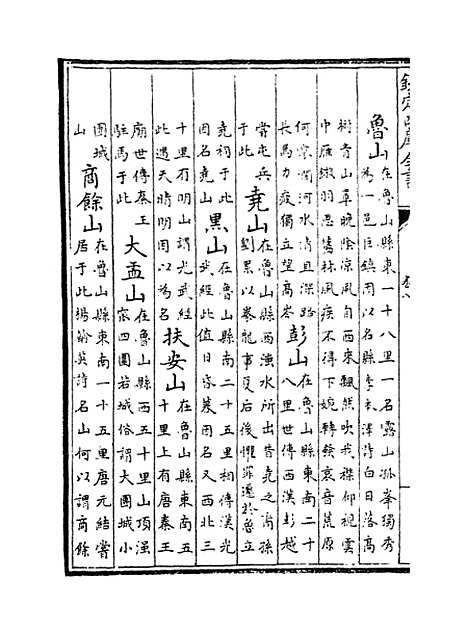 欽定四庫全書
魯山在魯山縣東一十八里一名露山孤峯獨秀
為一邑巨鎮因以名縣李澤詩白日落高
樹青山草晚陰涼風自西來飄然吹我襟仰視雲
中雁羽思舊林風疾不得下婉轉餘哀音荒原
何寂闊河水清且深路
長馬力疲獨立望高岑
彭山在魯山縣東南二十
八里世傳西漢彭越
嘗屯兵
于此
堯山在魯山縣西滍水所出昔堯之裔孫
劉累以豢龍事夏后後懼罪遷於魯立
堯祠于此
因名堯山
黑山在魯山縣南二十五里相傳漢光
武經此值日暮因名又西北三
十里有明山謂光武經
此遇天晴明因以為名
扶安山在魯山縣東南五
十里上有唐秦王
廟世傳秦王
駐馬于此
大盂山在魯山縣西五十里山頂窪
四圍若城俗謂大團城小
團城
山
商餘山在魯山縣東南一十五里唐元結嘗
居于此楊翰英詩名山何以謂商餘